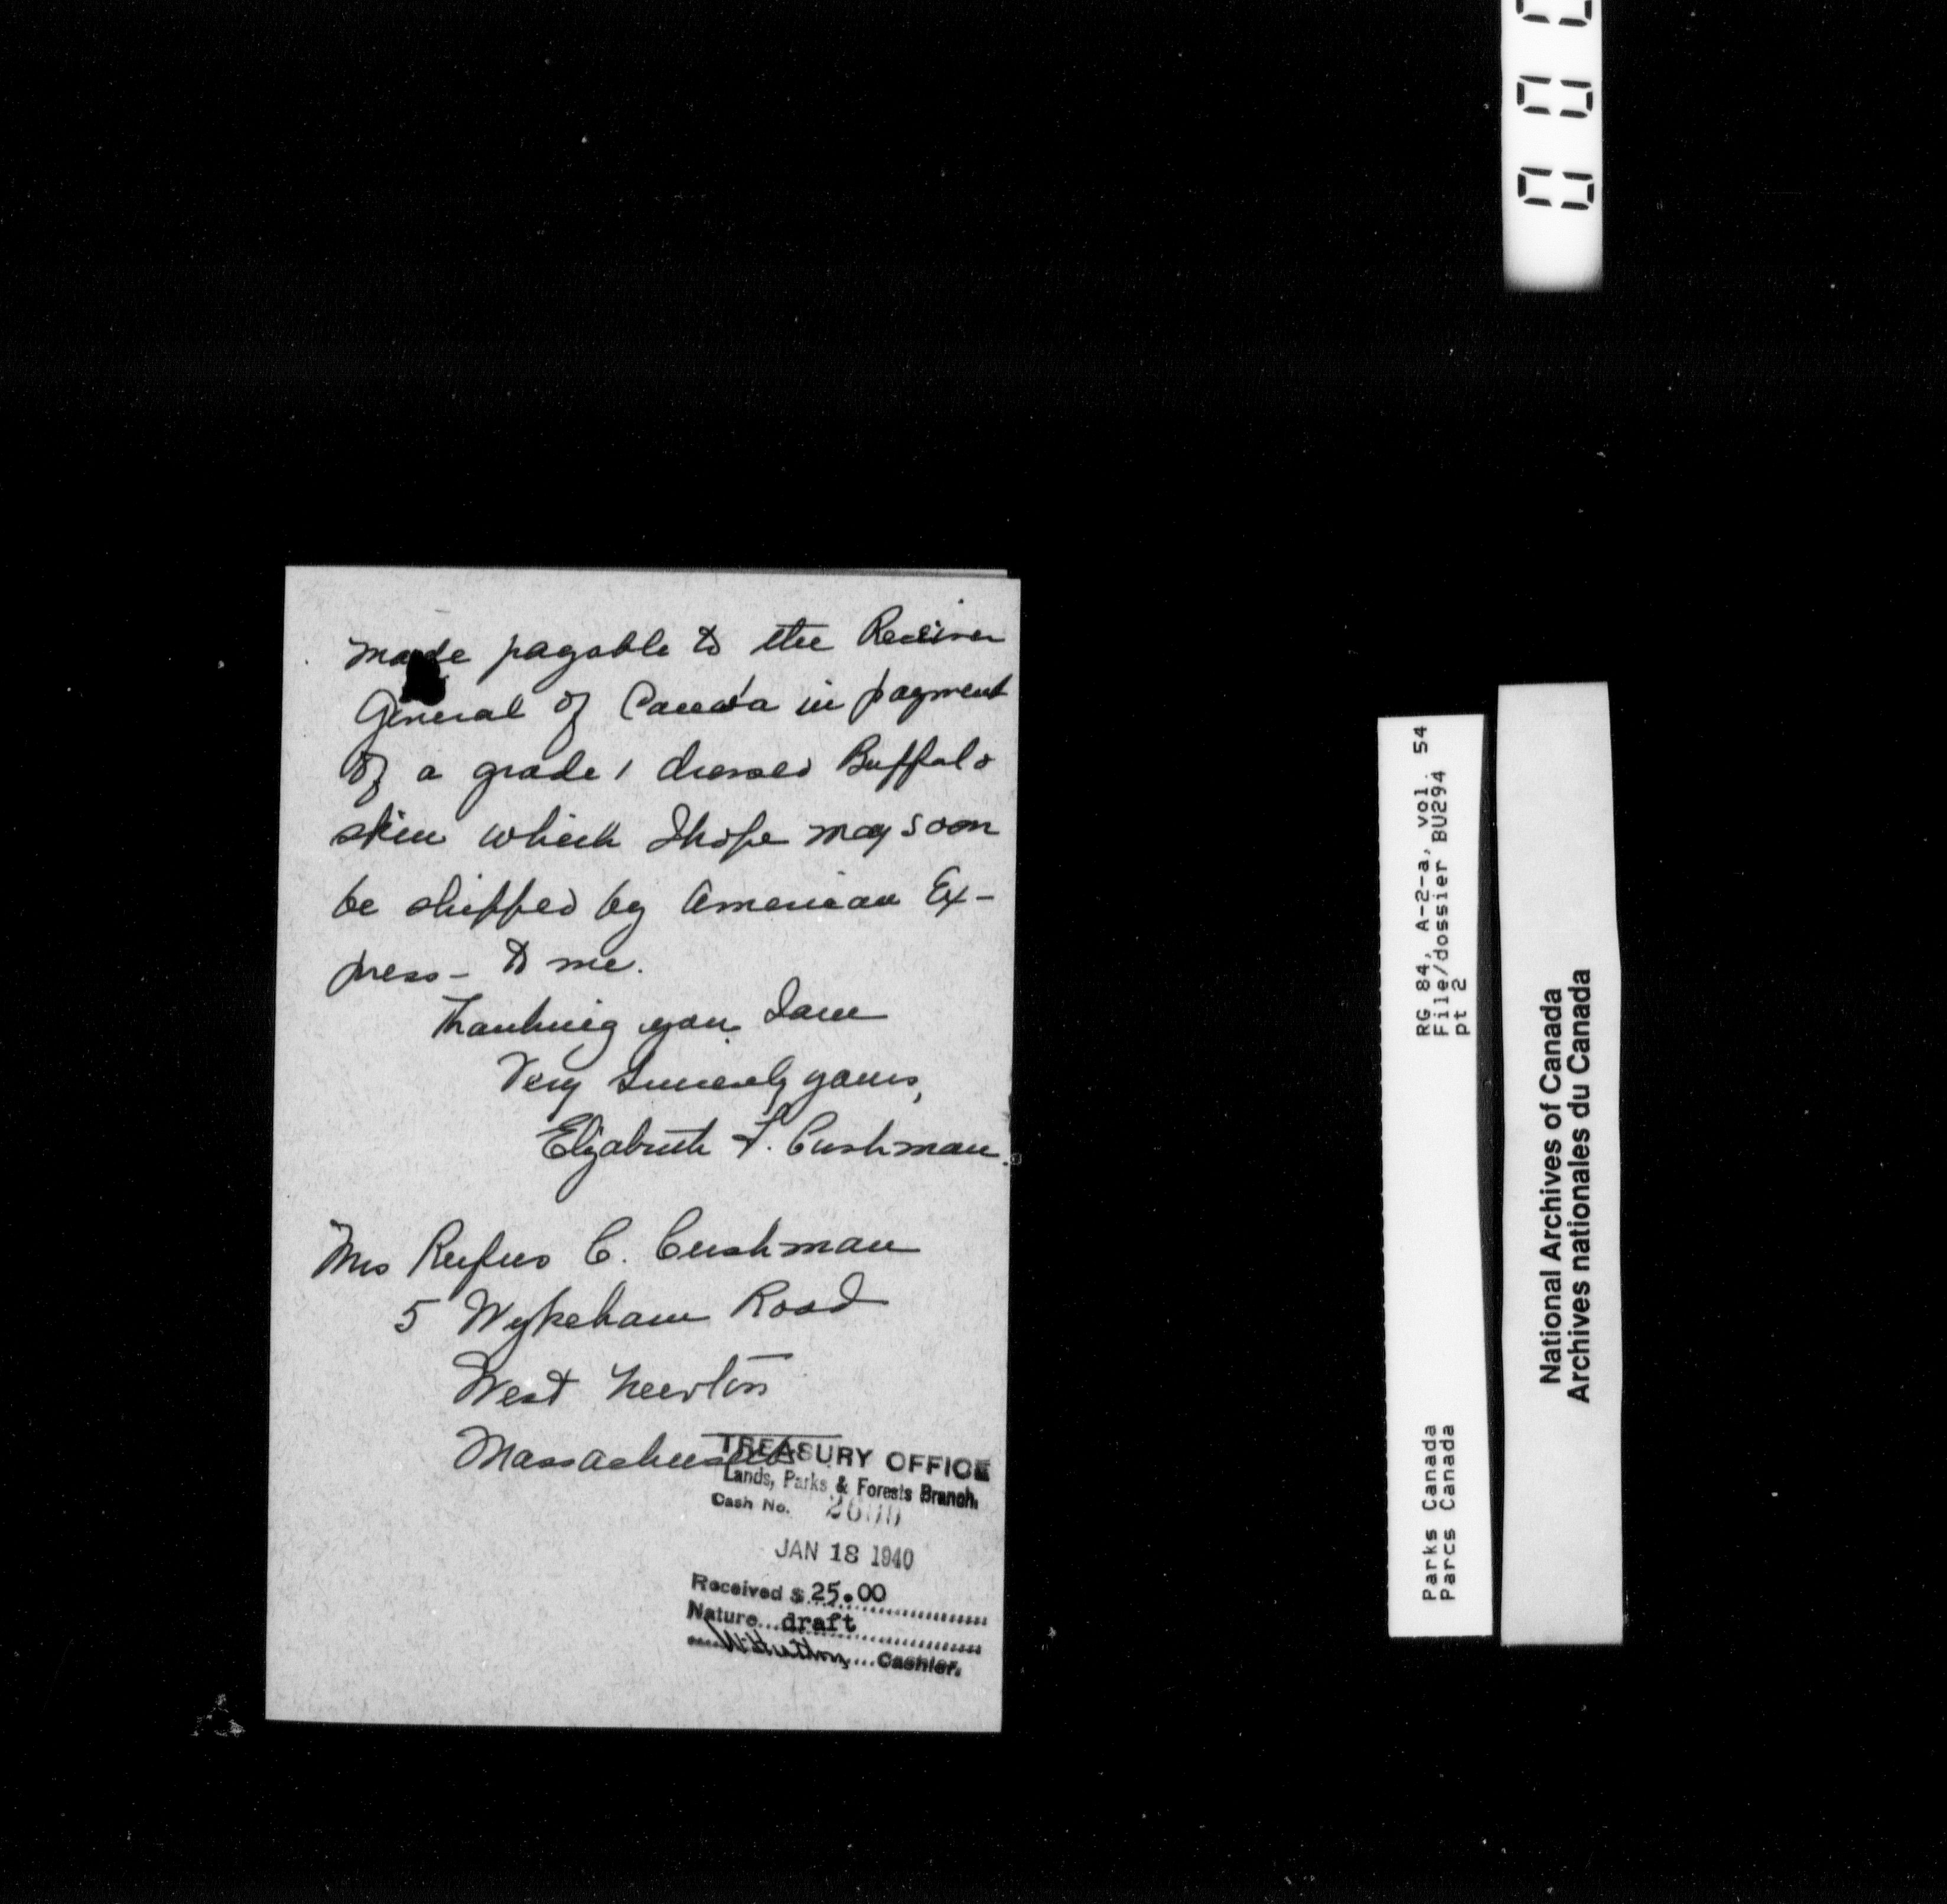 made payable to the Receiver
General of Canada in payment
of a grade 1 dressed Buffalo
skin which I hope may soon
be shipped by American Ex-
press - to me.
Thanking you, I am
Very Sincerely yours,
Elizabeth F. Cushman.
Mrs Rufus C. Cushman
5 Wykeham Road
West Newton
Massachusetts
TREASURY OFFICE
Lands, Parks & Forests Branch.
Cash No.
JAN 18 1940
Received $ 25.00
Nature draft
Cashier.
RG 84, A-2-a, vol. 54
File/dossier BU294
pt 2
Parks Canada
Parcs Canada
National Archives of Canada
Archives nationales du Canada